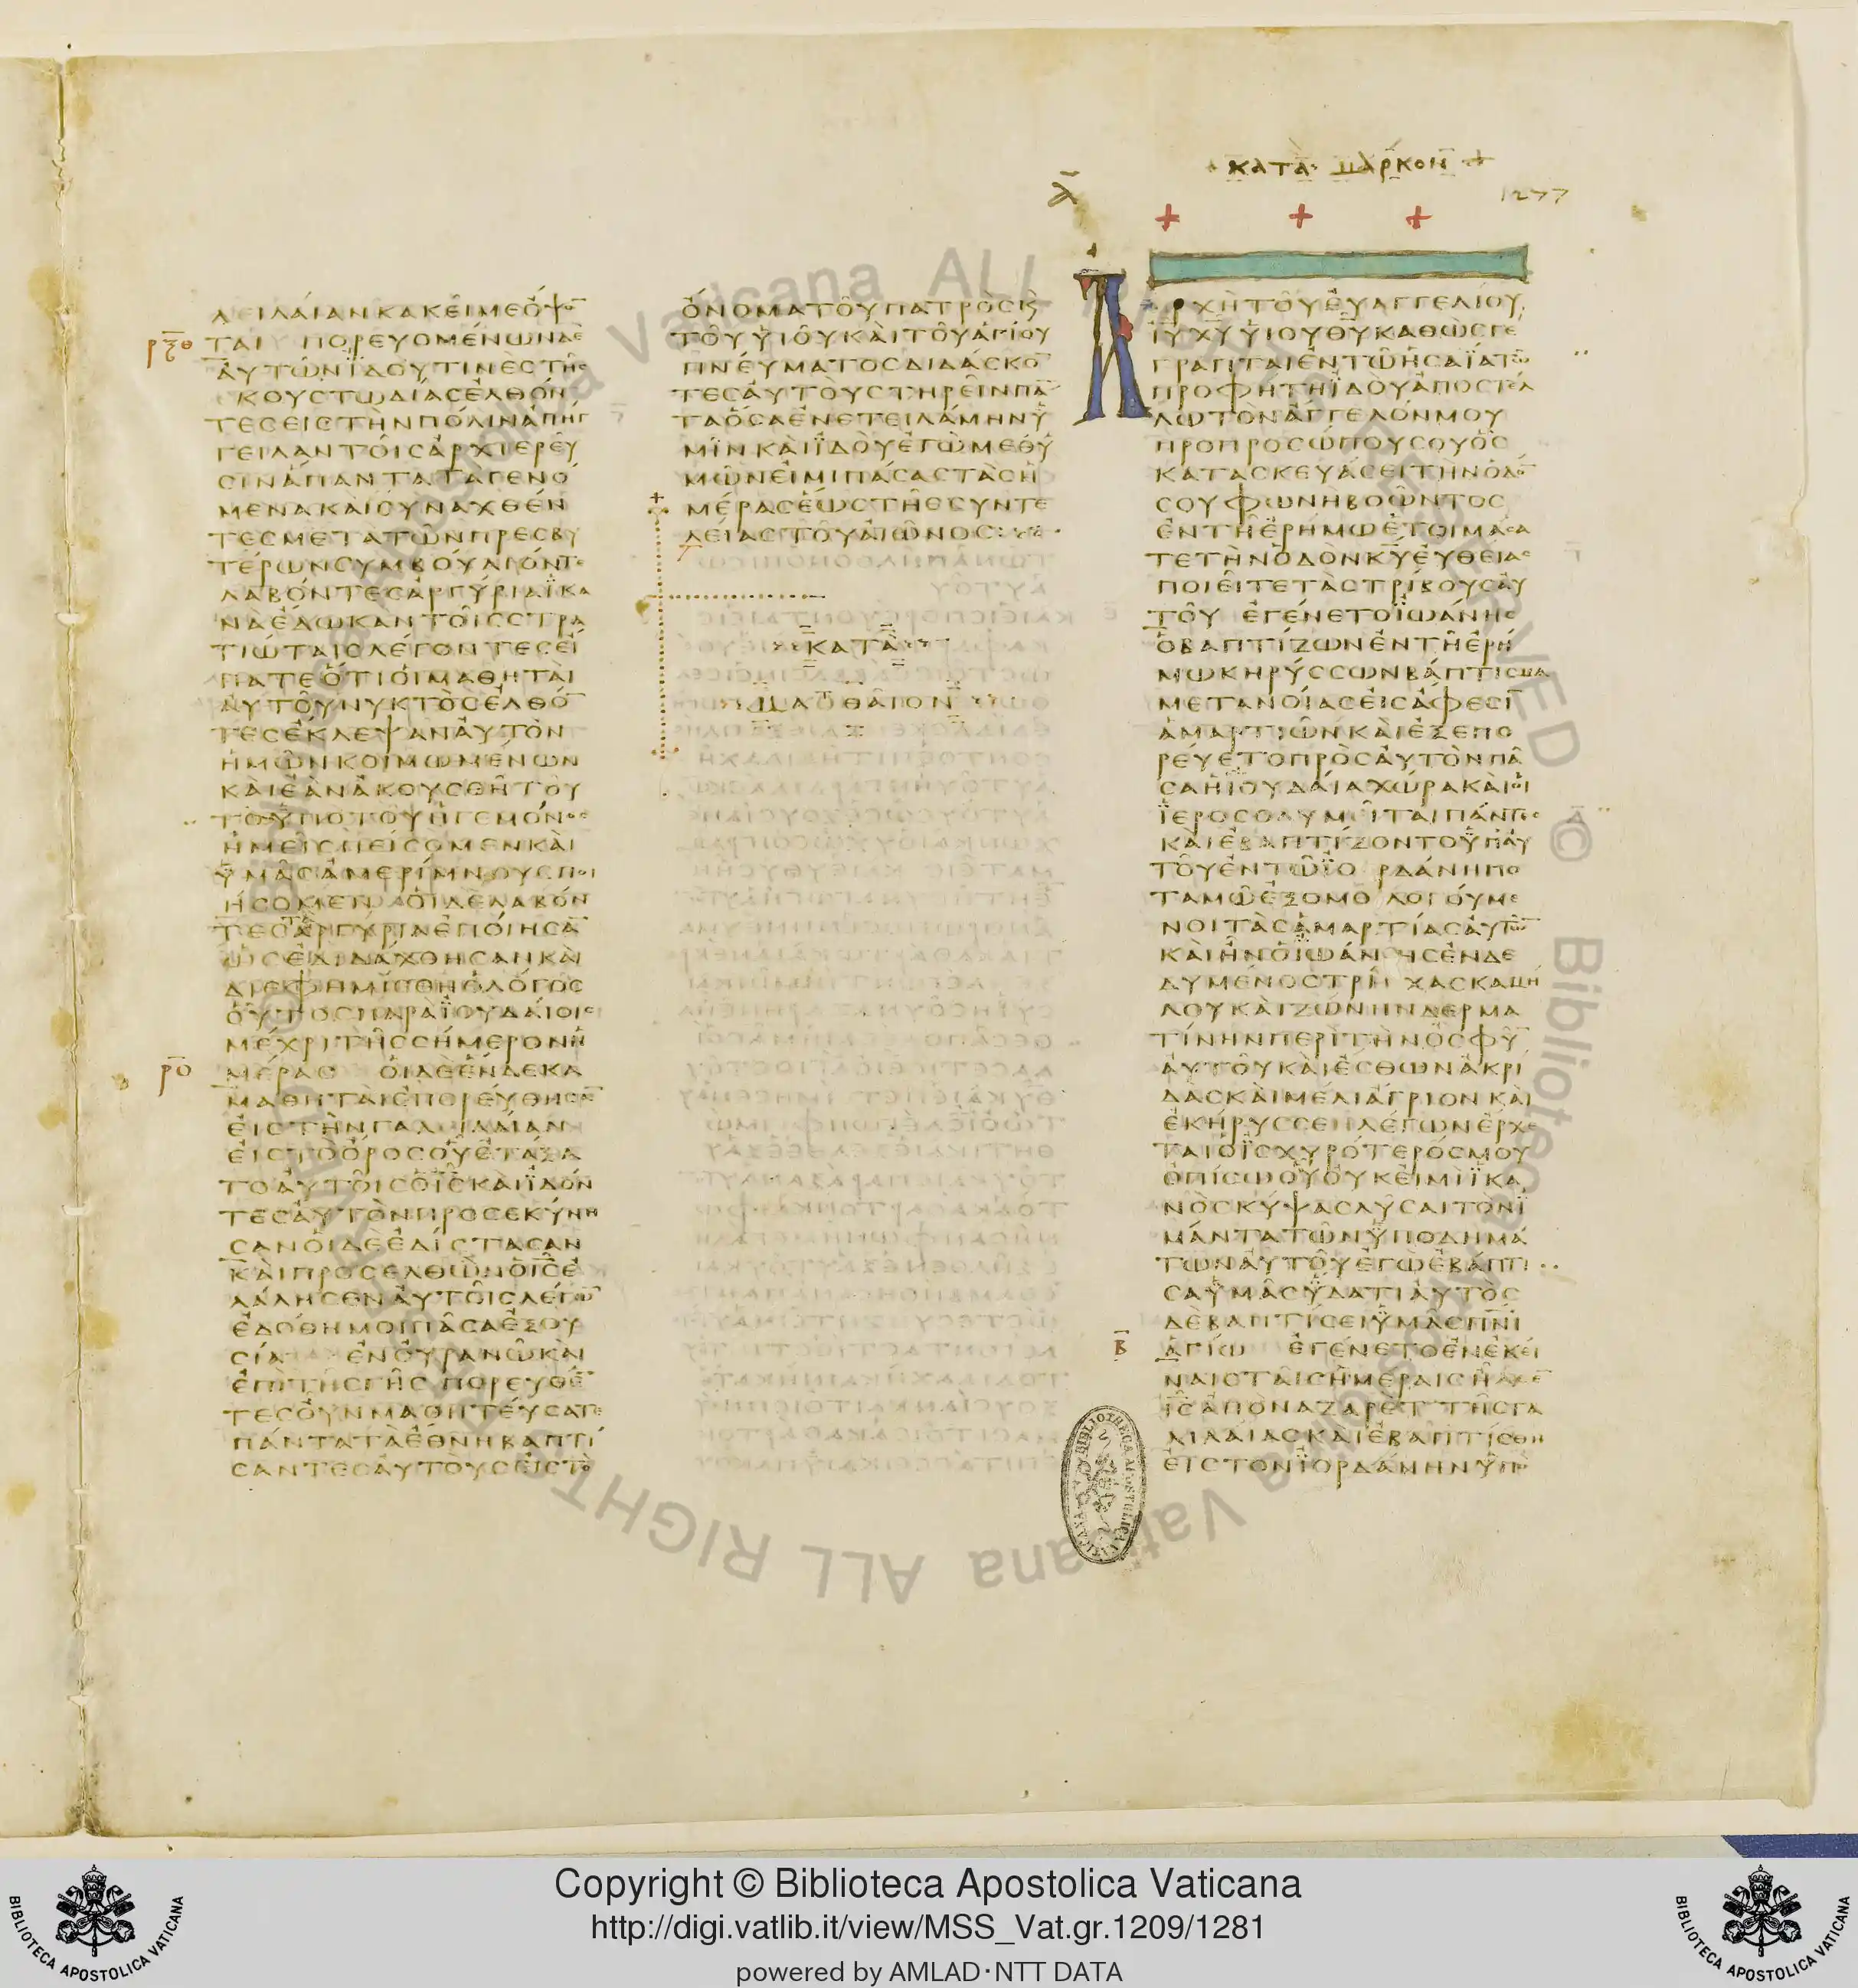 ΚΑΤΑ ΜΑΡΚΟΝ
1277
ΛΕΙΛΑΙΑΝΚΑΚΕΙΜΕΟΨΟ̅
ΡΞΘ ΤΑΙ ΠΟΡΕΥΟΜΕΝΩΝΔΕ
ΑΥΤΩΝΙΔΟΥΤΙΝΕΣΤΗΣ
ΚΟΥΣΤΩΔΙΑΣΕΛΘΟΝ
ΤΕΣΕΙΣΤΗΝΠΟΛΙΝΑΠΗΓ
ΓΕΙΛΑΝΤΟΙΣΑΡΧΙΕΡΕΥ
ΣΙΝΑΠΑΝΤΑΤΑΓΕΝΟ
ΜΕΝΑΚΑΙΣΥΝΑΧΘΕΝ
ΤΕΣΜΕΤΑΤΩΝΠΡΕΣΒΥ
ΤΕΡΩΝΣΥΜΒΟΥΛΙΟΝΤΕ
ΛΑΒΟΝΤΕΣΑΡΓΥΡΙΑΪΚΑ
ΝΑΕΔΩΚΑΝΤΟΙΣΣΤΡΑ
ΤΙΩΤΑΙΣΛΕΓΟΝΤΕΣΕΙ
ΠΑΤΕΟΤΙΟΙΜΑΘΗΤΑΙ
ΑΥΤΟΥΝΥΚΤΟΣΕΛΘΟ̅
ΤΕΣΕΚΛΕΨΑΝΑΥΤΟΝ
ΗΜΩΝΚΟΙΜΩΜΕΝΩΝ
ΚΑΙΕΑΝΑΚΟΥΣΘΗΤΟΥ
ΤΟΥΠΟΤΟΥΗΓΕΜΟΝΟΣ
ΗΜΕΙΣΠΕΙΣΟΜΕΝΚΑΙ
ΥΜΑΣΑΜΕΡΙΜΝΟΥΣΠΟΙ
ΗΣΟΜΕΝ ΟΙΔΕΛΑΒΟΝ
ΤΕΣΑΡΓΥΡΙΑΕΠΟΙΗΣΑ̅
ΩΣΕΔΙΔΑΧΘΗΣΑΝΚΑΙ
ΔΙΕΦΗΜΙΣΘΗΟΛΟΓΟΣ
ΟΥΤΟΣΠΑΡΑΪΟΥΔΑΙΟΙΣ
ΜΕΧΡΙΤΗΣΣΗΜΕΡΟΝΗ
ΡΟ ΜΕΡΑΣ ΟΙΔΕΕΝΔΕΚΑ
ΜΑΘΗΤΑΙΕΠΟΡΕΥΘΗΣΑ̅
ΕΙΣΤΗΝΓΑΛΙΛΑΙΑΝ
ΕΙΣΤΟΟΡΟΣΟΥΕΤΑΞΑ
ΤΟΑΥΤΟΙΣΟΙ̅Σ̅ΚΑΙΪΔΟΝ
ΤΕΣΑΥΤΟΝΠΡΟΣΕΚΥΝΗ
ΣΑΝΟΙΔΕΕΔΙΣΤΑΣΑΝ
ΚΑΙΠΡΟΣΕΛΘΩΝΟΙ̅Σ̅Ε
ΛΑΛΗΣΕΝΑΥΤΟΙΣΛΕΓΩ̅
ΕΔΟΘΗΜΟΙΠΑΣΑΕΞΟΥ
ΣΙΑ ΕΝΟΥΡΑΝΩΚΑΙ
ΕΠΙΤΗΣΓΗΣ ΠΟΡΕΥΘΕ̅
ΤΕΣΟΥΝΜΑΘΗΤΕΥΣΑΤΕ
ΠΑΝΤΑΤΑΕΘΝΗΒΑΠΤΙ
ΣΑΝΤΕΣΑΥΤΟΥΣΕΙΣΤΟ
ΟΝΟΜΑΤΟΥΠΑΤΡΟΣΚΑΙ
ΤΟΥΥΙΟΥΚΑΙΤΟΥΑΓΙΟΥ
ΠΝΕΥΜΑΤΟΣΔΙΔΑΣΚΟ̅
ΤΕΣΑΥΤΟΥΣΤΗΡΕΙΝΠΑ̅
ΤΑΟΣΑΕΝΕΤΕΙΛΑΜΗΝΫ
ΜΙΝΚΑΙΪΔΟΥΕΓΩΜΕΘΥ
ΜΩΝΕΙΜΙΠΑΣΑΣΤΑΣΗ
ΜΕΡΑΣΕΩΣΤΗΣΣΥΝΤΕ
ΛΕΙΑΣΤΟΥΑΙΩΝΟΣ
ΚΑΤΑ
ΜΑΘΘΑΙΟΝ
Α ΑΡΧΗΤΟΥΕΥΑΓΓΕΛΙΟΥ
Ι̅Υ̅Χ̅Υ̅ΥΙΟΥΘ̅Υ̅ΚΑΘΩΣΓΕ
ΓΡΑΠΤΑΙΕΝΤΩΗΣΑΪΑΤΩ
ΠΡΟΦΗΤΗΪΔΟΥΑΠΟΣΤΕΛ
ΛΩΤΟΝΑΓΓΕΛΟΝΜΟΥ
ΠΡΟΠΡΟΣΩΠΟΥΣΟΥΟΣ
ΚΑΤΑΣΚΕΥΑΣΕΙΤΗΝΟΔΟ̅
ΣΟΥΦΩΝΗΒΟΩΝΤΟΣ
ΕΝΤΗΕΡΗΜΩΕΤΟΙΜΑΣΑ
ΤΕΤΗΝΟΔΟΝΚ̅Υ̅ΕΥΘΕΙΑΣ
ΠΟΙΕΙΤΕΤΑΣΤΡΙΒΟΥΣΑΥ
ΤΟΥ ΕΓΕΝΕΤΟΪΩΑΝΗΣ
ΟΒΑΠΤΙΖΩΝΕΝΤΗΕΡΗ
ΜΩΚΗΡΥΣΣΩΝΒΑΠΤΙΣΜΑ
ΜΕΤΑΝΟΙΑΣΕΙΣΑΦΕΣΙ̅
ΑΜΑΡΤΙΩΝΚΑΙΕΞΕΠΟ
ΡΕΥΕΤΟΠΡΟΣΑΥΤΟΝΠΑ
ΣΑΗΪΟΥΔΑΙΑΧΩΡΑΚΑΙΟΙ
ΪΕΡΟΣΟΛΥΜΕΙΤΑΙΠΑΝΤΕΣ
ΚΑΙΕΒΑΠΤΙΖΟΝΤΟΫΠΑΥ
ΤΟΥΕΝΤΩΪΟΡΔΑΝΗΠΟ
ΤΑΜΩΕΞΟΜΟΛΟΓΟΥΜΕ
ΝΟΙΤΑΣΑΜΑΡΤΙΑΣΑΥΤΩ̅
ΚΑΙΗΝΟΪΩΑΝΗΣΕΝΔΕ
ΔΥΜΕΝΟΣΤΡΙΧΑΣΚΑΜΗ
ΛΟΥΚΑΙΖΩΝΗΝΔΕΡΜΑ
ΤΙΝΗΝΠΕΡΙΤΗΝΟΣΦΥ̅
ΑΥΤΟΥΚΑΙΕΣΘΩΝΑΚΡΙ
ΔΑΣΚΑΙΜΕΛΙΑΓΡΙΟΝΚΑΙ
ΕΚΗΡΥΣΣΕΝΛΕΓΩΝΕΡΧΕ
ΤΑΙΟΪΣΧΥΡΟΤΕΡΟΣΜΟΥ
ΟΠΙΣΩΟΥΟΥΚΕΙΜΙΪΚΑ
ΝΟΣΚΥΨΑΣΛΥΣΑΙΤΟΝΪ
ΜΑΝΤΑΤΩΝΫΠΟΔΗΜΑ
ΤΩΝΑΥΤΟΥΕΓΩΕΒΑΠΤΙ
ΣΑΫΜΑΣΫΔΑΤΙΑΥΤΟΣ
ΔΕΒΑΠΤΙΣΕΙΫΜΑΣΠ̅Ν̅Ι̅
Β ΑΓΙΩ ΕΓΕΝΕΤΟΕΝΕΚΕΙ
ΝΑΙΣΤΑΙΣΗΜΕΡΑΙΣΗΛΘΕ̅
Ι̅Σ̅ΑΠΟΝΑΖΑΡΕΤ ΤΗΣΓΑ
ΛΙΛΑΙΑΣΚΑΙΕΒΑΠΤΙΣΘΗ
ΕΙΣΤΟΝΪΟΡΔΑΝΗΝΫΠΟ
Copyright © Biblioteca Apostolica Vaticana
http://digi.vatlib.it/view/MSS_Vat.gr.1209/1281
powered by AMLAD·NTT DATA
BIBLIOTECA APOSTOLICA VATICANA
BIBLIOTECA APOSTOLICA VATICANA